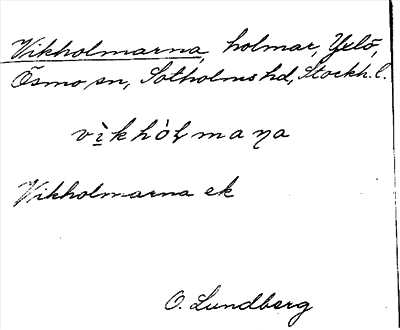 Vikholmarna, holmar, Yxlö,
Ösmo sn, Sotholms hd, Stockh. l.
vìkhòlmaṇa
Vikholmarna ek
O. Lundberg